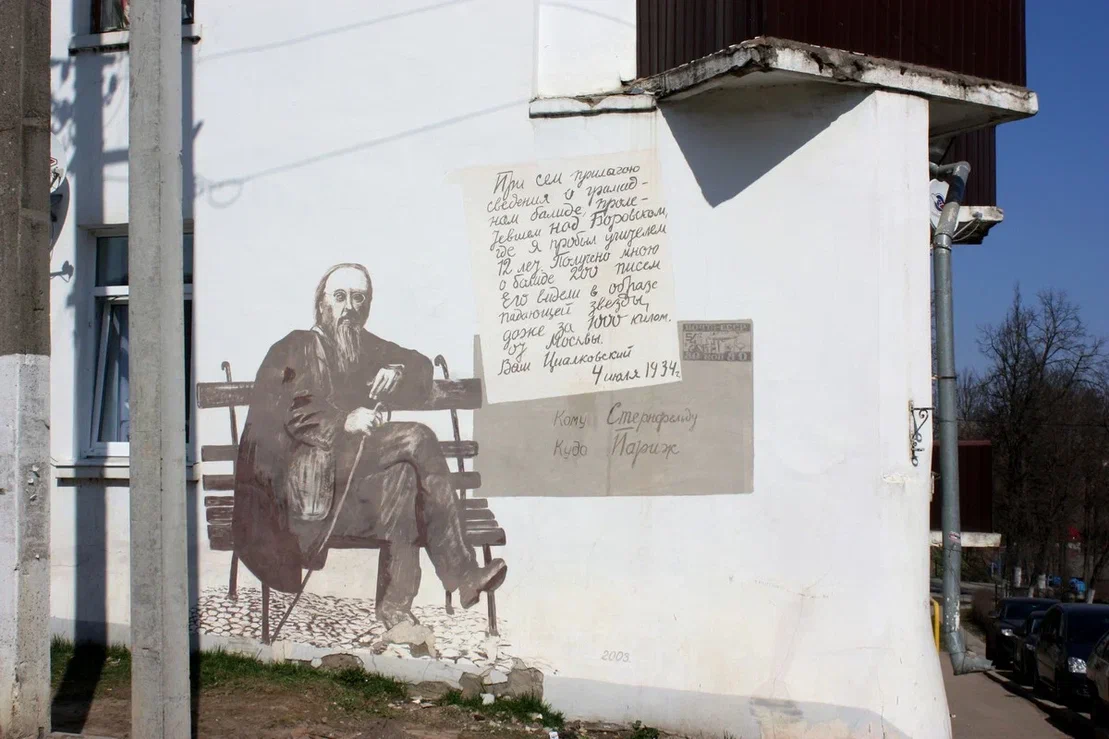 При сем прилагаю
сведения о грамад-
нам балиде, проле-
тевшем над Боровском,
где я пробыл учителем
12 лет. Получено мною
о балиде 200 писем
Его видели в образе
падающей звезды,
даже за 1000 килом.
от Москвы.
Ваш Циалковский
4 июля 1934г.
ПОЧТА СССР
Кому Стернфельду
Куда Париж
2003.